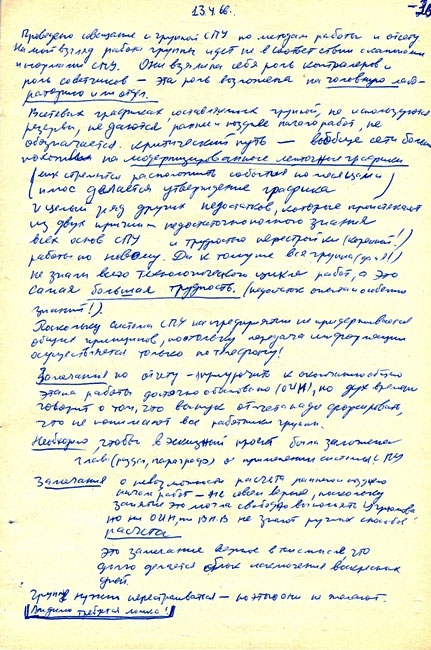 13.4.66.
Проведено совещание с группой СПУ по методам работы и отчету
На мой взгляд работа группы идет не в соответствии с
и нормами СПУ. Они взяли на себя роль контролеров и
роль советчиков — эта роль возложена на головную лабо-
раторию и отдел.
В сетевых графиках составленных группой, не используются
резервы, не даются раннее и позднее начало работ, не
обозначается критический путь — вообще сети более
похожи на модернизированные ленточные графики
(их стремятся расположить события по месяцам
плюс делается утверждение графика)
И целый ряд других недостатков, которые проистекают
из двух причин недостаточно полного знания
всех основ СПУ и трудности перестройки (коренной!)
работы по новому. Да к тому же вся группа (и я!)
не знали всего технологического цикла работ, а это
самая большая трудность. (недостаток опыта и особенно
знаний!).
Поскольку система СПУ на предприятии не придерживается
общих принципов, поскольку передача информации
осуществляется только по телефону!
Замечания по отчету — к окончанию общего
этапа работы должно было (ОИИ), но дух времени
говорит о том, что выпуск отчета надо форсировать,
что не понимают все работники группы.
Необходимо, чтобы в эскизный проект была заложена
глава (раздел, параграф) о применении системы СПУ
Замечания о невозможности расчета раннего и позднего
начал работ — не совсем верно, поскольку
занятие это могла свободно выполнять
но ни ОИИ, ни В.П.В не знают ручных способов
расчета
Это замечание верное в том смысле, что
долго делается исключения воскресных
дней.
Группе нужно перестраиваться — но этого они не желают.
Видимо требуется ломка!